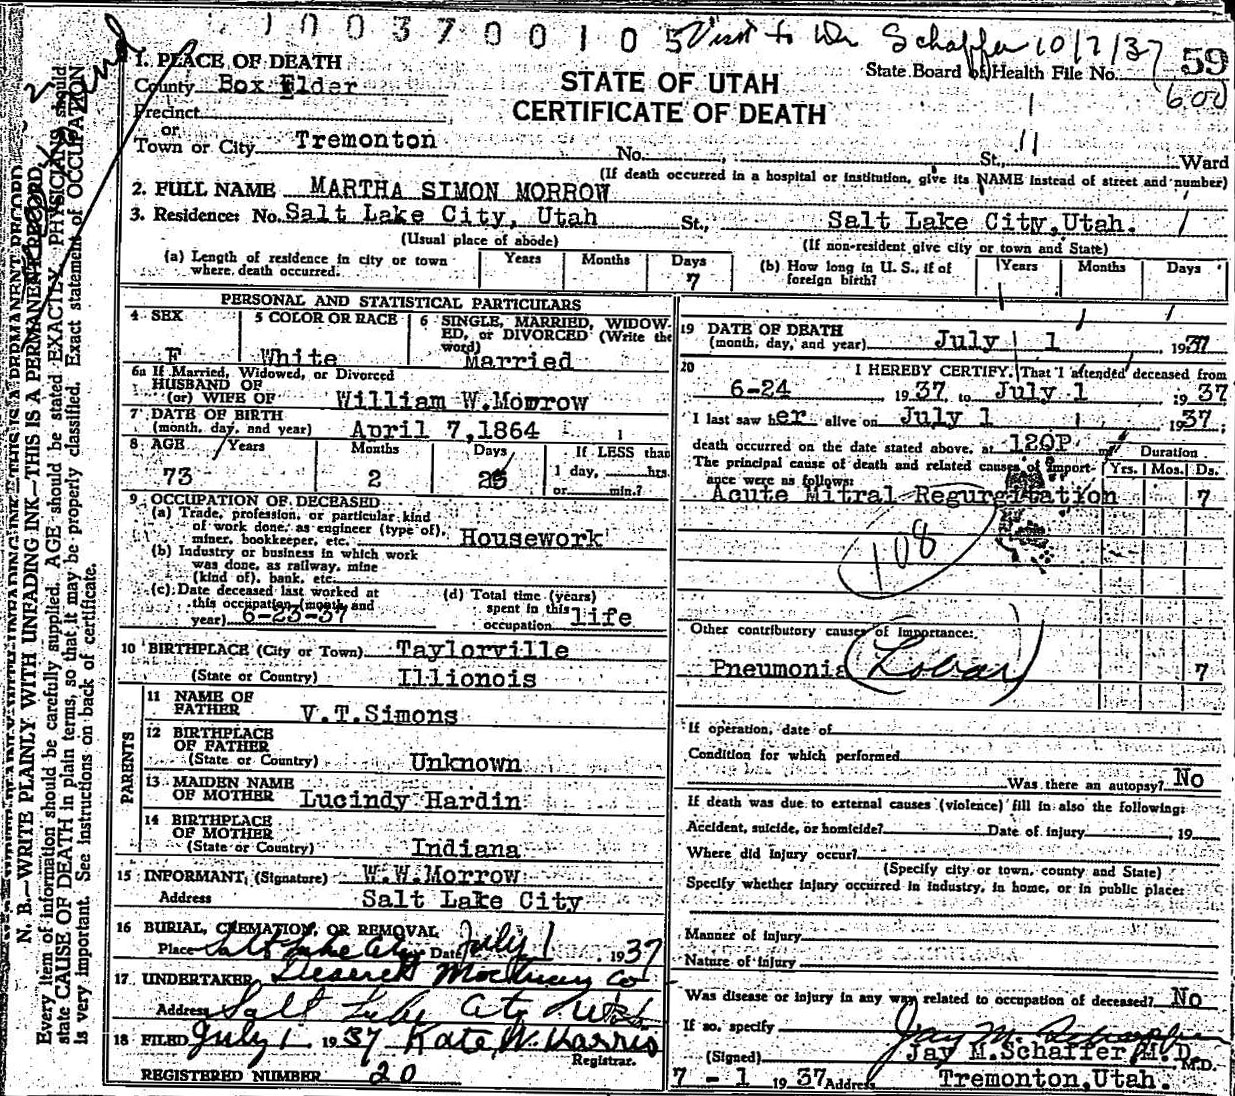 1003700105 Visit to Dr Schaffer 10/7/37
1. PLACE OF DEATH
STATE OF UTAH
CERTIFICATE OF DEATH
State Board of Health File No. 59
600
County Box Elder
Precinct
or
Town or City Tremonton No. St., Ward
(If death occurred in a hospital or institution, give its NAME instead of street and number)
2. FULL NAME MARTHA SIMON MORROW
3. Residence: No. Salt Lake City, Utah St., Salt Lake City,Utah.
(Usual place of abode) (If non-resident give city or town and State)
(a) Length of residence in city or town where death occurred. Years Months Days 7
(b) How long in U. S., if of foreign birth? Years Months Days
PERSONAL AND STATISTICAL PARTICULARS
4 SEX F
5 COLOR OR RACE White
6 SINGLE, MARRIED, WIDOWED, or DIVORCED (Write the word) Married
6a If Married, Widowed, or Divorced
HUSBAND OF
(or) WIFE OF William W.Morrow
7 DATE OF BIRTH
(month, day, and year) April 7,1864
8 AGE Years Months Days If LESS than
73 2 25 1 day, hrs.
or min.?
9 OCCUPATION OF DECEASED
(a) Trade, profession, or particular kind
of work done, as engineer (type of),
miner, bookkeeper, etc. Housework
(b) Industry or business in which work
was done, as railway, mine
(kind of), bank, etc.
(c) Date deceased last worked at
this occupation (month and
year) 6-23-37
(d) Total time (years)
spent in this
occupation life
10 BIRTHPLACE (City or Town) Taylorville
(State or Country) Illionois
PARENTS
11 NAME OF
FATHER V.T.Simons
12 BIRTHPLACE
OF FATHER
(State or Country) Unknown
13 MAIDEN NAME
OF MOTHER Lucindy Hardin
14 BIRTHPLACE
OF MOTHER
(State or Country) Indiana
15 INFORMANT, (Signature) W.W.Morrow
Address Salt Lake City
16 BURIAL, CREMATION, OR REMOVAL
Place Salt Lake City Date July 1 1937
17 UNDERTAKER Deseret Mortuary Co
Address Salt Lake City Utah
18 FILED July 1 1937 Kate W. Harris
Registrar.
REGISTERED NUMBER 20
19 DATE OF DEATH
(month, day, and year) July 1 1937
20 I HEREBY CERTIFY, That I attended deceased from
6-24 1937 to July 1 1937
I last saw her alive on July 1 1937;
death occurred on the date stated above, at 120P m. Duration
The principal cause of death and related causes of importance were as follows: Yrs. Mos. Ds.
Acute Mitral Regurgitation 7
108
Other contributory causes of importance:
Pneumonia Lobar 7
If operation, date of
Condition for which performed
Was there an autopsy? No
If death was due to external causes (violence) fill in also the following:
Accident, suicide, or homicide? Date of injury , 19
Where did injury occur?
(Specify city or town, county and State)
Specify whether injury occurred in industry, in home, or in public place:
Manner of injury
Nature of injury
Was disease or injury in any way related to occupation of deceased? No
If so, specify
Jay M. Schaffer
(Signed) Jay M.Schaffer M.D. M.D.
7 - 1 1937 Address Tremonton,Utah.
N. B.—WRITE PLAINLY WITH UNFADING INK—THIS IS A PERMANENT RECORD
Every item of information should be carefully supplied. AGE should be stated EXACTLY. PHYSICIANS should
state CAUSE OF DEATH in plain terms, so that it may be properly classified. Exact statement of OCCUPATION
is very important. See instructions on back of certificate.